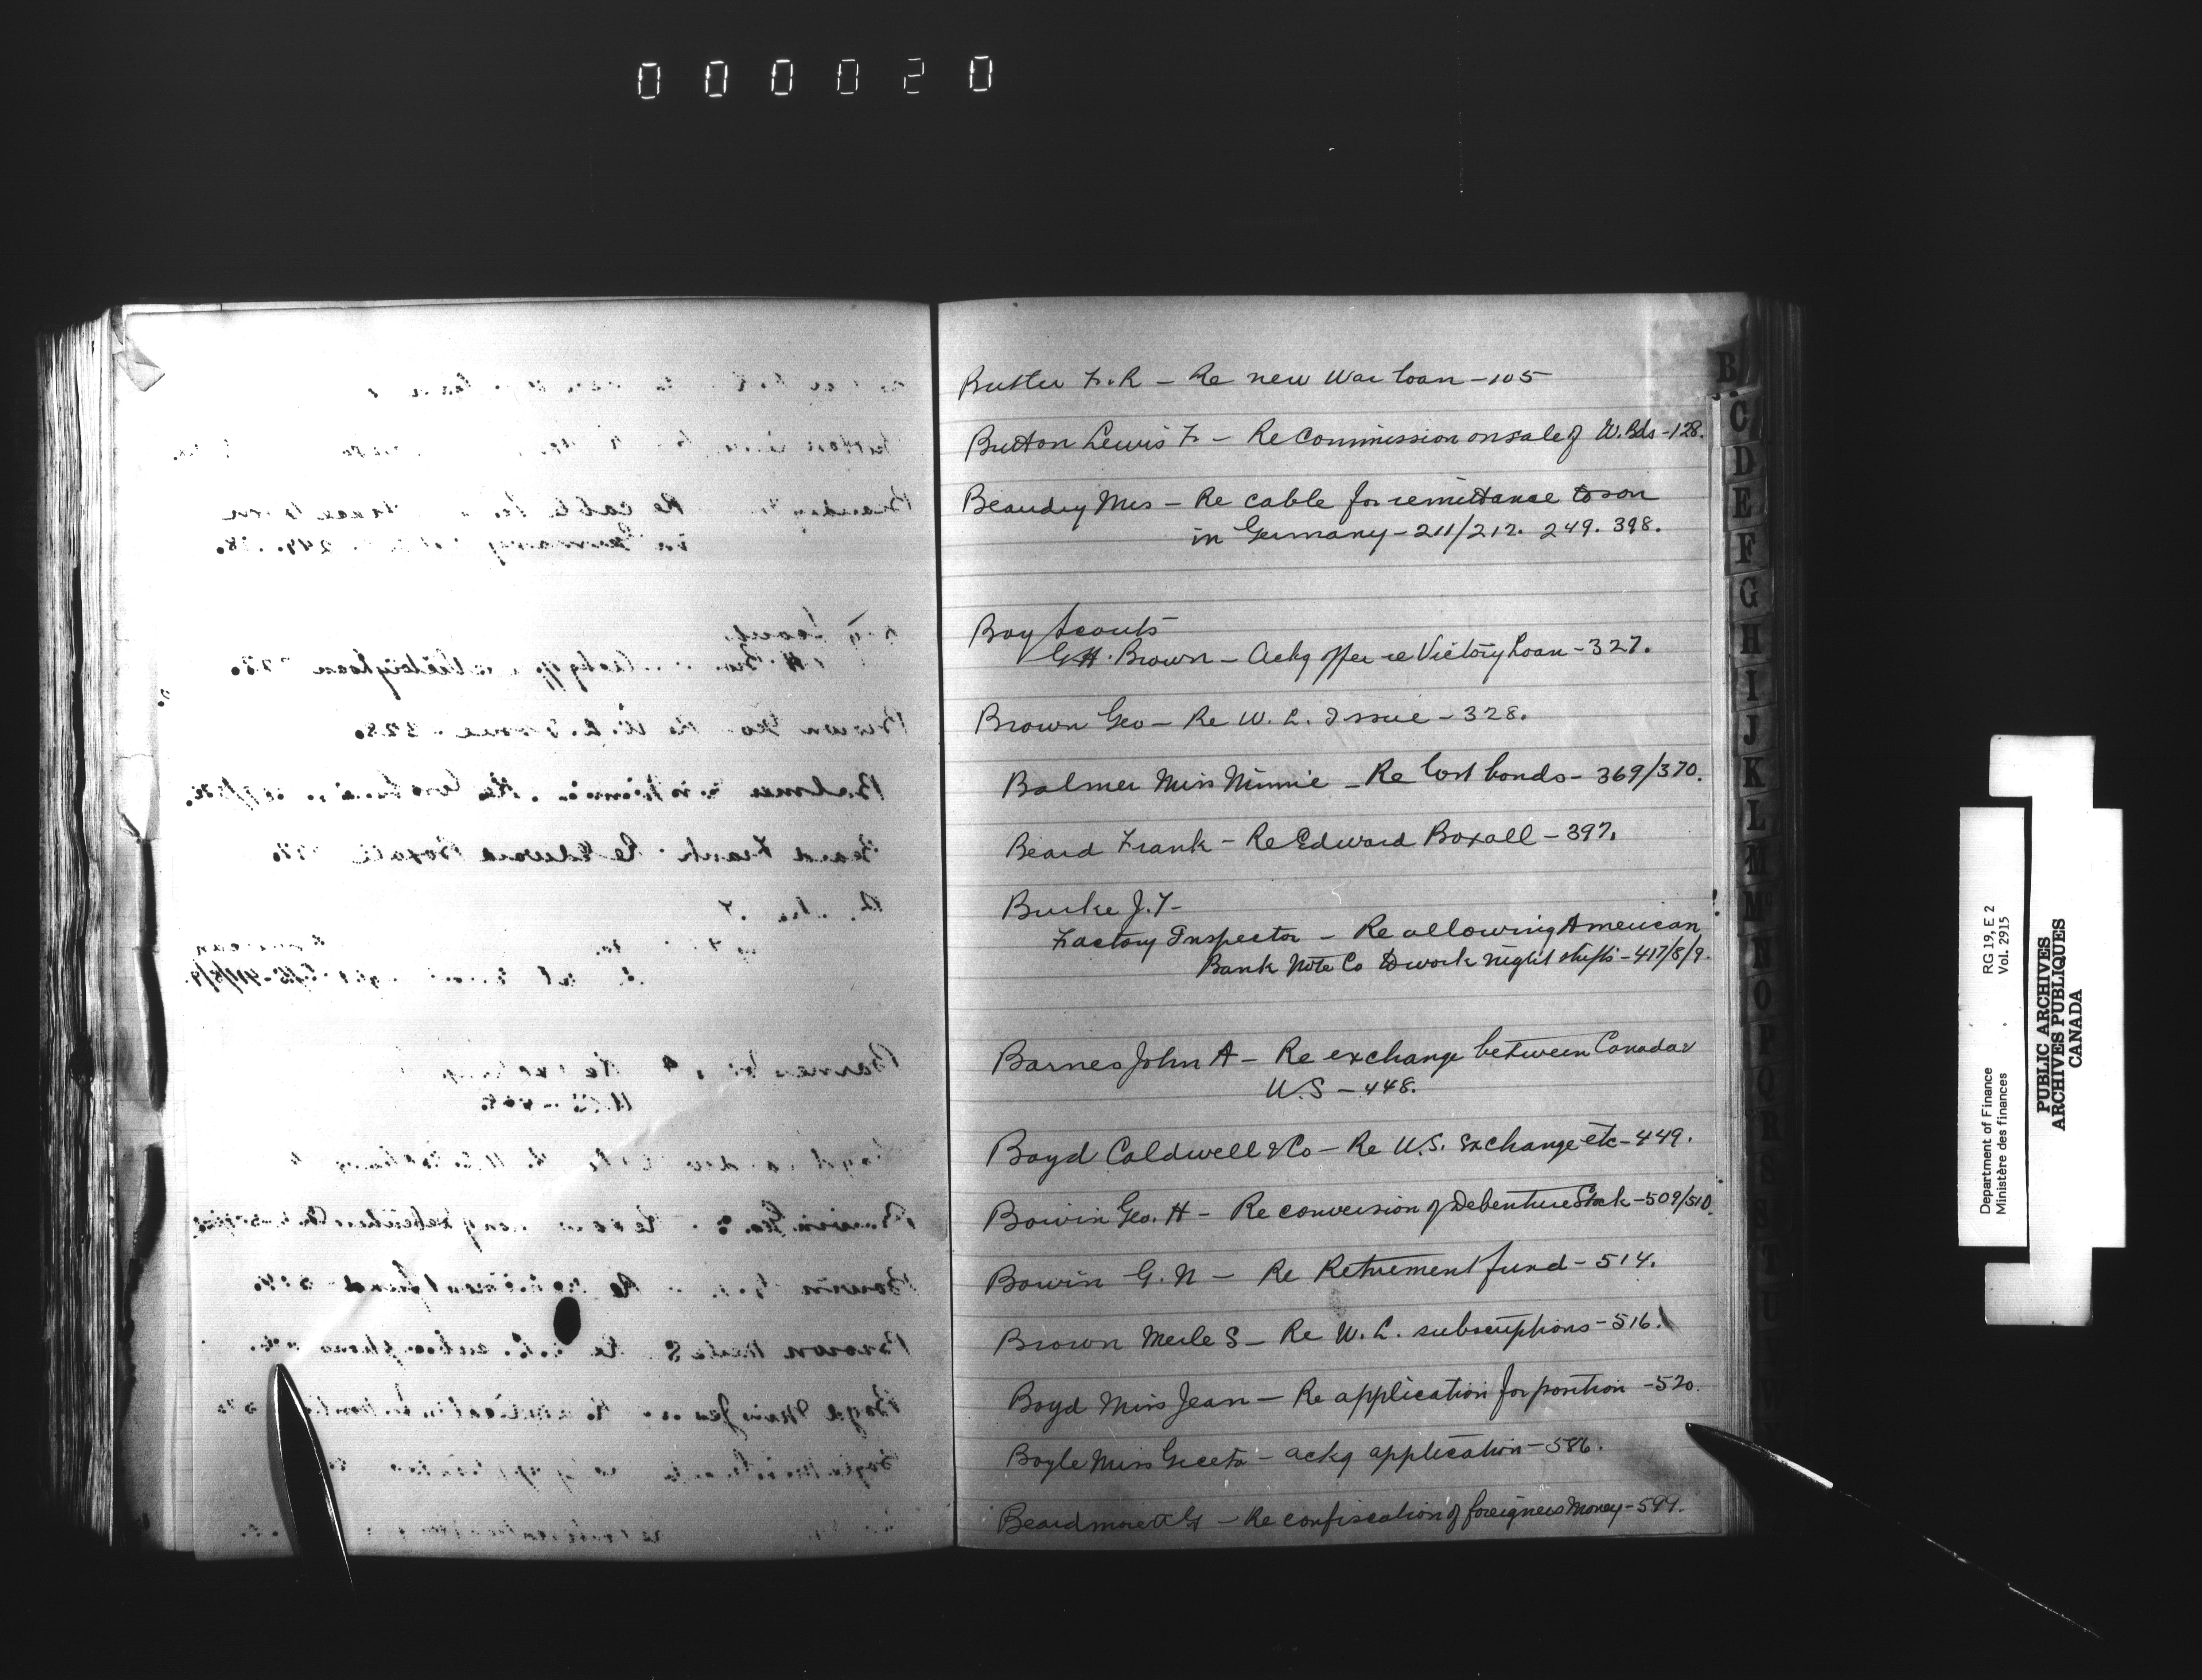 000020
Butler F. R - Re new War loan - 105
Button Lewis F - Re Commission on sale of W. Bds - 128.
Beaudry Mrs - Re cable for remittance to son
in Germany - 211/212. 249. 398.
Boy Scouts
G H. Brown - Ackg offer re Victory Loan - 327.
Brown Geo - Re W. L. Issue - 328.
Balmer Miss Minnie - Re lost bonds - 369/370.
Beard Frank - Re Edward Boxall - 397.
Burke J. T -
Factory Inspector - Re allowing American
Bank Note Co to work night shifts - 417/8/9.
Barnes John A - Re exchange between Canada &
U.S - 448.
Boyd Caldwell & Co - Re U.S. Exchange etc - 449.
Bowin Geo. H - Re conversion of Debenture Stock - 509/510.
Bowin G. N - Re Retirement fund - 514.
Brown Merle S - Re W. L. subscriptions - 516.
Boyd Miss Jean - Re application for position - 520.
Boyle Miss - ackg application - 586.
- Re confiscation of foreigners Money - 599.
B
C
D
E
F
G
H
I
J
K
L
M
Mc
N
O
P
Q
R
S
T
U
Department of Finance RG 19, E 2
Ministère des finances Vol. 2915
PUBLIC ARCHIVES
ARCHIVES PUBLIQUES
CANADA